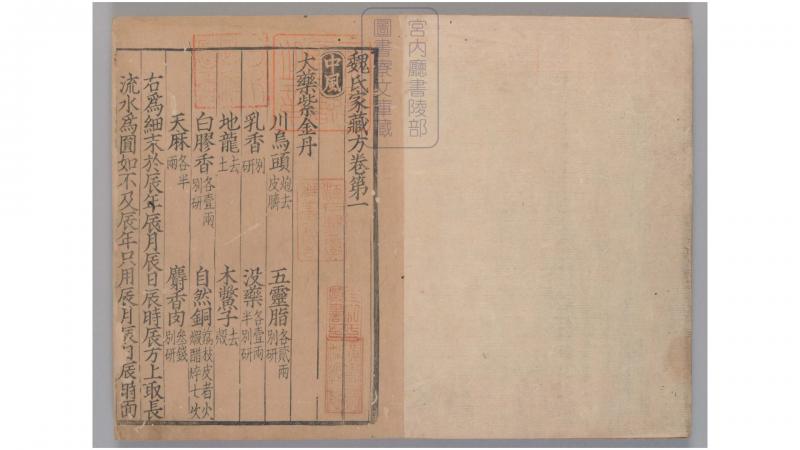 魏氏家藏方卷第一
中風
大藥紫金丹
川烏頭炮去皮臍 五靈脂各貳兩別研
乳香別研 没藥各壹兩半別研
地龍去土 木鱉子去殻
白膠香各壹兩別研 自然銅荔枝皮者火煅醋淬七次
天麻各半兩 麝香肉叁錢別研
右爲細末於辰年辰月辰日辰時辰方上取長
流水爲圓如不及辰年只用辰月辰日辰時而
宮内廳書陵部
圖書寮文庫藏